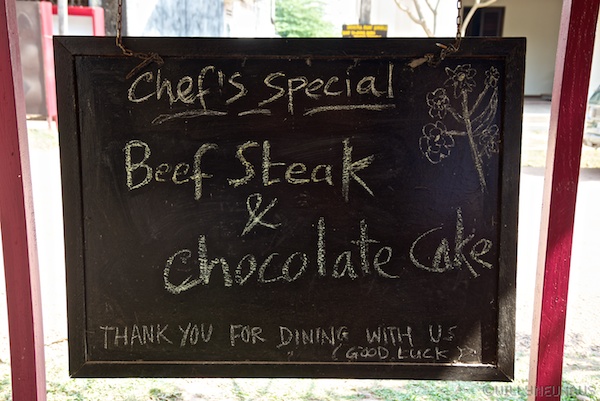 Chef's Special
Beef Steak
&
Chocolate Cake
THANK YOU FOR DINING WITH US
(GOOD LUCK)